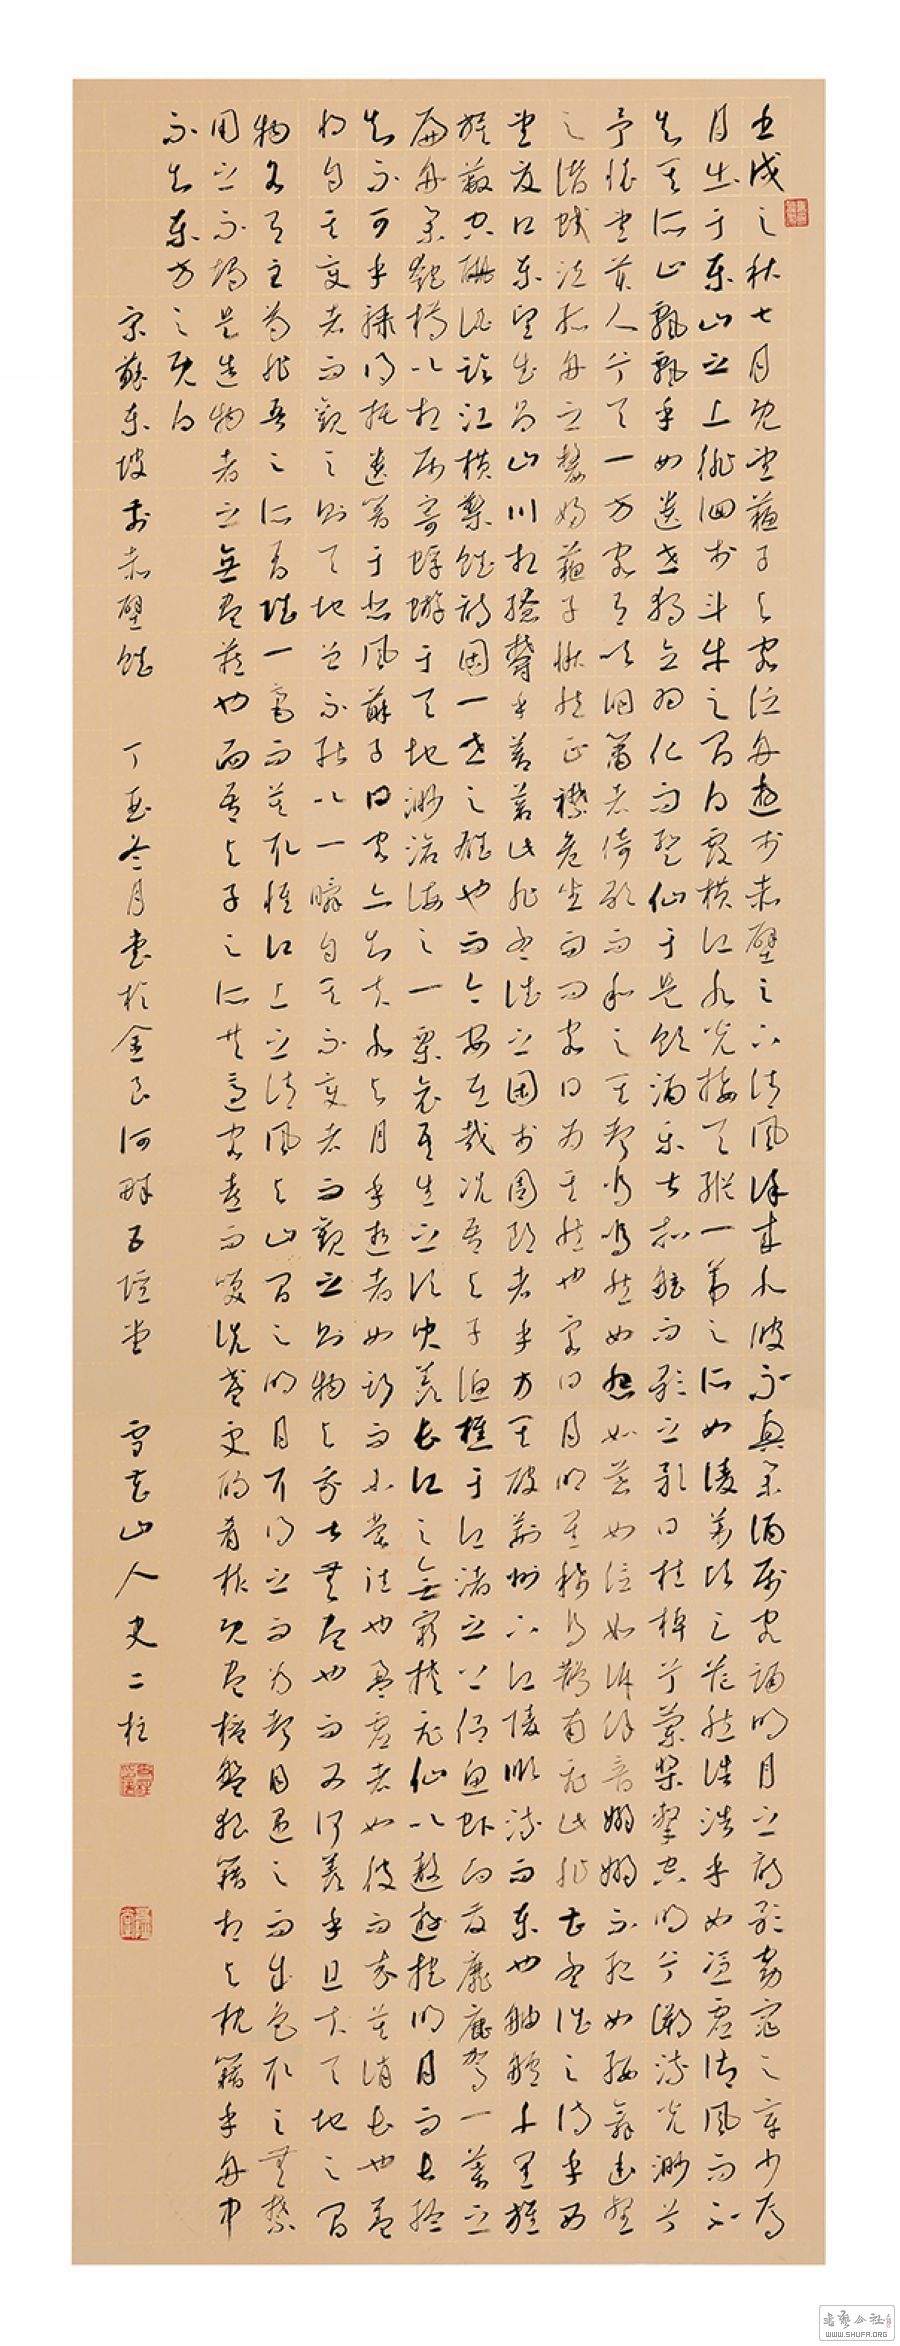 壬戌之秋七月既望蘇子與客泛舟遊於赤壁之下清風徐來水波不興舉酒屬客誦明月之詩歌窈窕之章少焉
月出于東山之上徘徊於斗牛之間白露橫江水光接天縱一葦之所如凌萬頃之茫然浩浩乎如馮虛御風而不
知其所止飄飄乎如遺世獨立羽化而登仙于是飲酒樂甚扣舷而歌之歌曰桂棹兮蘭槳擊空明兮溯流光渺兮
予懷望美人兮天一方客有吹洞簫者倚歌而和之其聲嗚嗚然如怨如慕如泣如訴餘音嫋嫋不絕如縷舞幽壑
之潛蛟泣孤舟之嫠婦蘇子愀然正襟危坐而問客曰為其然也客曰月明星稀烏鵲南飛此非曹孟德之詩乎西
望夏口東望武昌山川相繆鬱乎蒼蒼此非孟德之困於周郎者乎方其破荊州下江陵順流而東也舳艫千里旌
旗蔽空釃酒臨江橫槊賦詩固一世之雄也而今安在哉況吾與子漁樵于江渚之上侶魚蝦而友麋鹿駕一葉之
扁舟舉匏樽以相屬寄蜉蝣于天地渺滄海之一粟哀吾生之須臾羨長江之無窮挾飛仙以遨遊抱明月而長終
知不可乎驟得托遺響于悲風蘇子曰客亦知夫水與月乎逝者如斯而未嘗往也盈虛者如彼而卒莫消長也蓋
將自其變者而觀之則天地曾不能以一瞬自其不變者而觀之則物與我皆無盡也而又何羨乎且夫天地之間
物各有主苟非吾之所有雖一毫而莫取惟江上之清風與山間之明月耳得之而為聲目遇之而成色取之無禁
用之不竭是造物者之無盡藏也而吾與子之所共適客喜而笑洗盞更酌肴核既盡杯盤狼藉相與枕藉乎舟中
不知東方之既白
宋蘇東坡前赤壁賦 丁酉冬月書於金良河畔五德堂 雪花山人史二柱
WWW.SHUFA.ORG